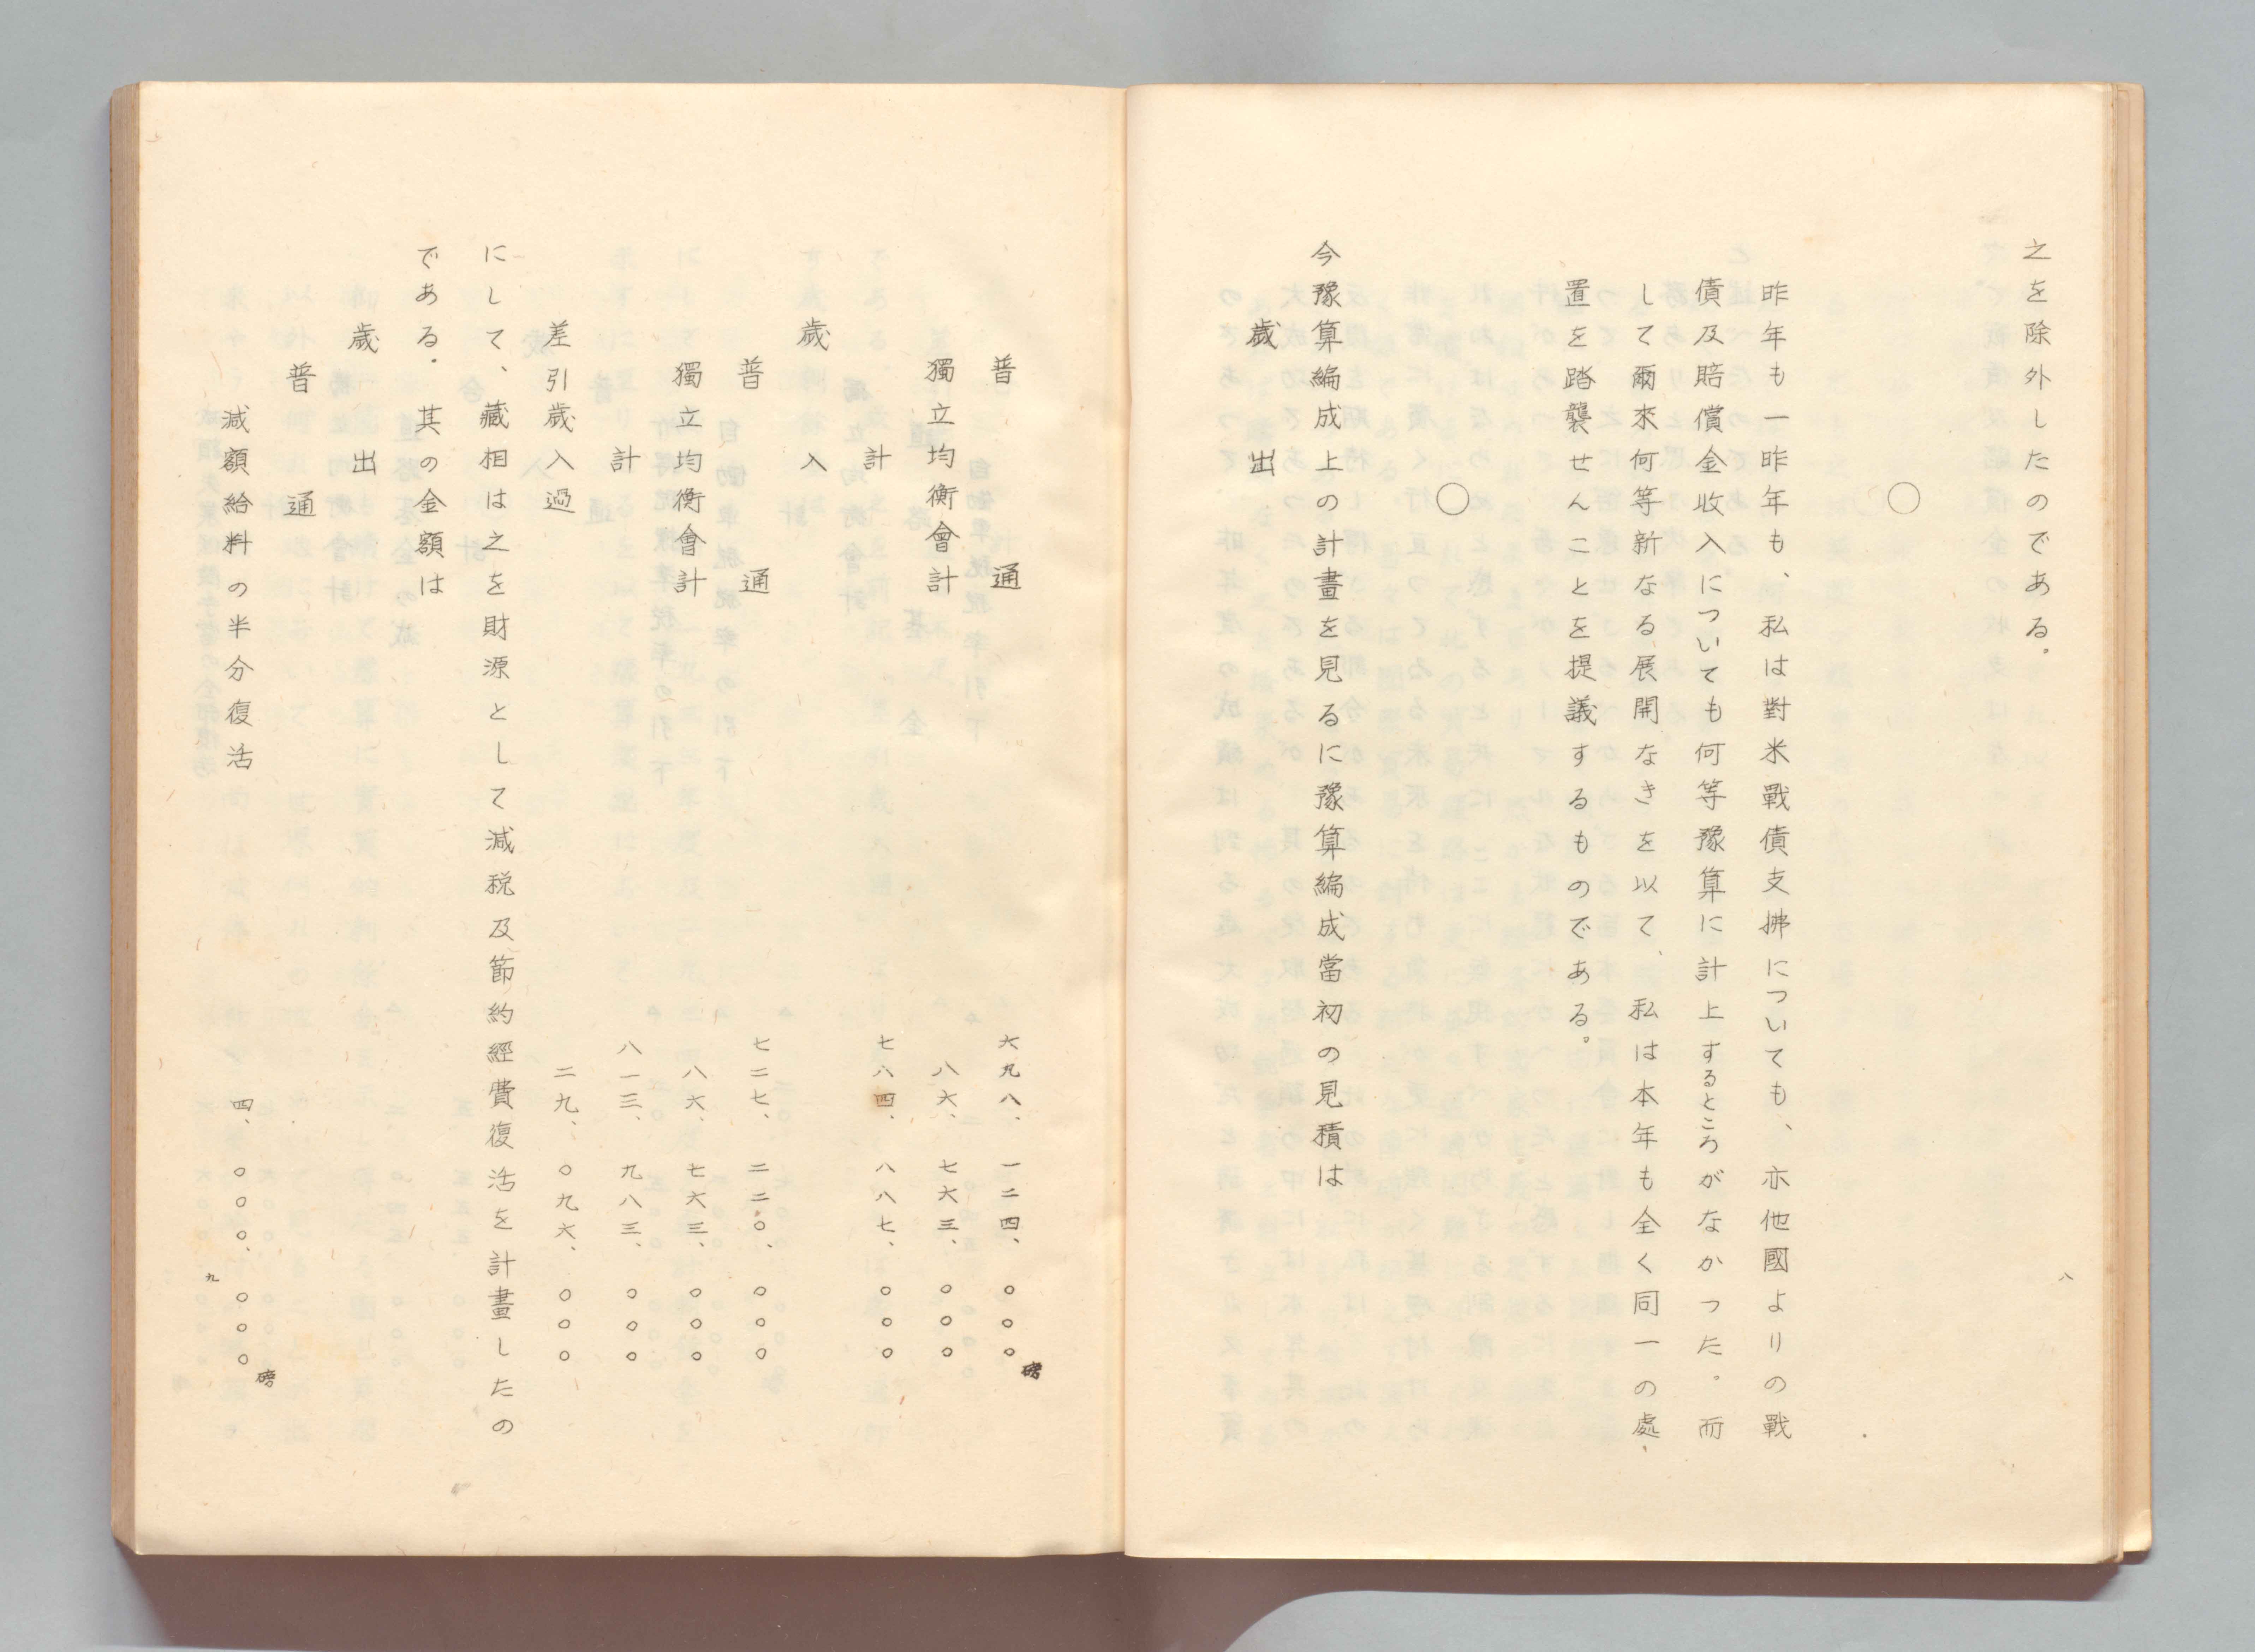 之を除外したのである。
○
昨年も一昨年も、私は對米戰債支拂についても、亦他國よりの戰
債及賠償金收入についても何等豫算に計上するところがなかった。而
して爾來何等新なる展開なきを以て、私は本年も全く同一の處、
置を踏襲せんことを提議するものである。
○
今豫算編成上の計畫を見るに豫算編成當初の見積は
歲出
八
普通 六九八、一二四、〇〇〇磅
獨立均衡會計 八六、七六三、〇〇〇
計 七八四、八八七、〇〇〇
歲入
普通 七二七、二二〇、〇〇〇
獨立均衡會計 八六、七六三、〇〇〇
計 八一三、九八三、〇〇〇
差引歲入過 二九、〇九六、〇〇〇
にして、藏相は之を財源として減税及節約經費復活を計畫したの
である。其の金額は
歲出
普通
減額給料の半分復活 四、〇〇〇、〇〇〇磅
九